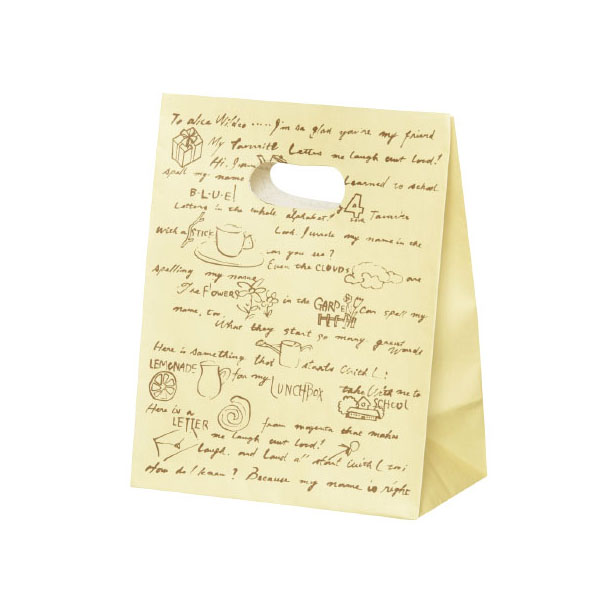 To alice Wilder.....I'm so glad you're my friend
My favorite Letters me laugh out loud!
Hi, I'm
spell my name Learned to school
B·L·U·E! 4 Favorite
Letters in the whole alphabet!
With a STICK Look. I wrote my name in the
can you see?
Even the CLOUDS are
spelling my name
The FLOWERS in the GARDEN Can spell my
name, too. What they start so many great words
Here is something that starts with L:
LEMONADE for my LUNCHBOX take with me to SCHOOL
Here is a
LETTER from magenta that makes
me laugh out loud!
Laugh, and Loud all start with L too!
How do I know? Because my name is right